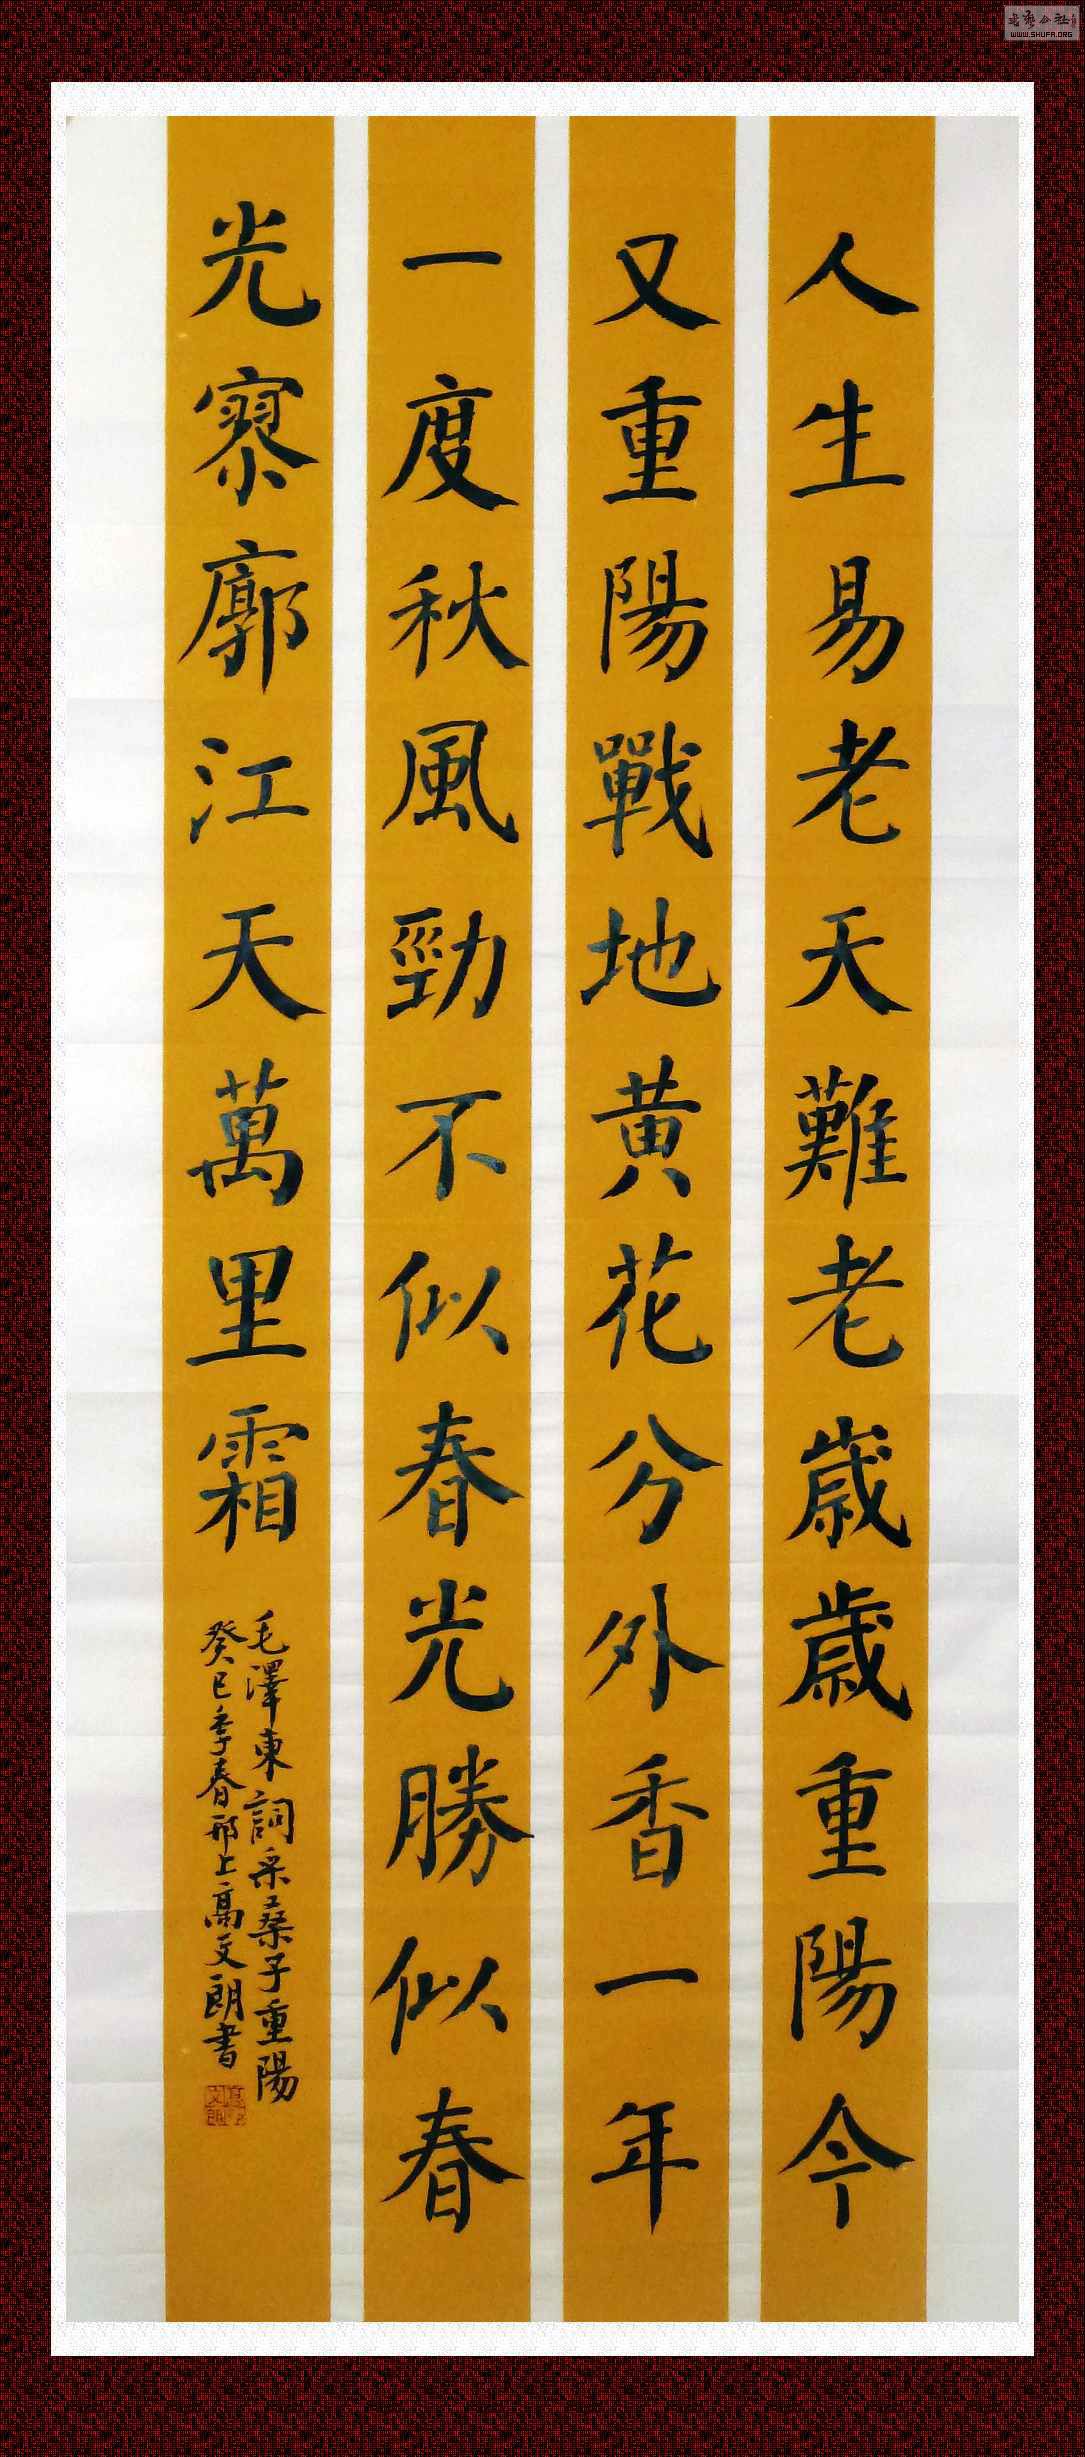 人生易老天難老歲歲重陽今
又重陽戰地黄花分外香一年
一度秋風勁不似春光勝似春
光寥廓江天萬里霜
毛澤東詞采桑子重陽
癸巳季春邗上高文朗書
WWW.SHUFA.ORG